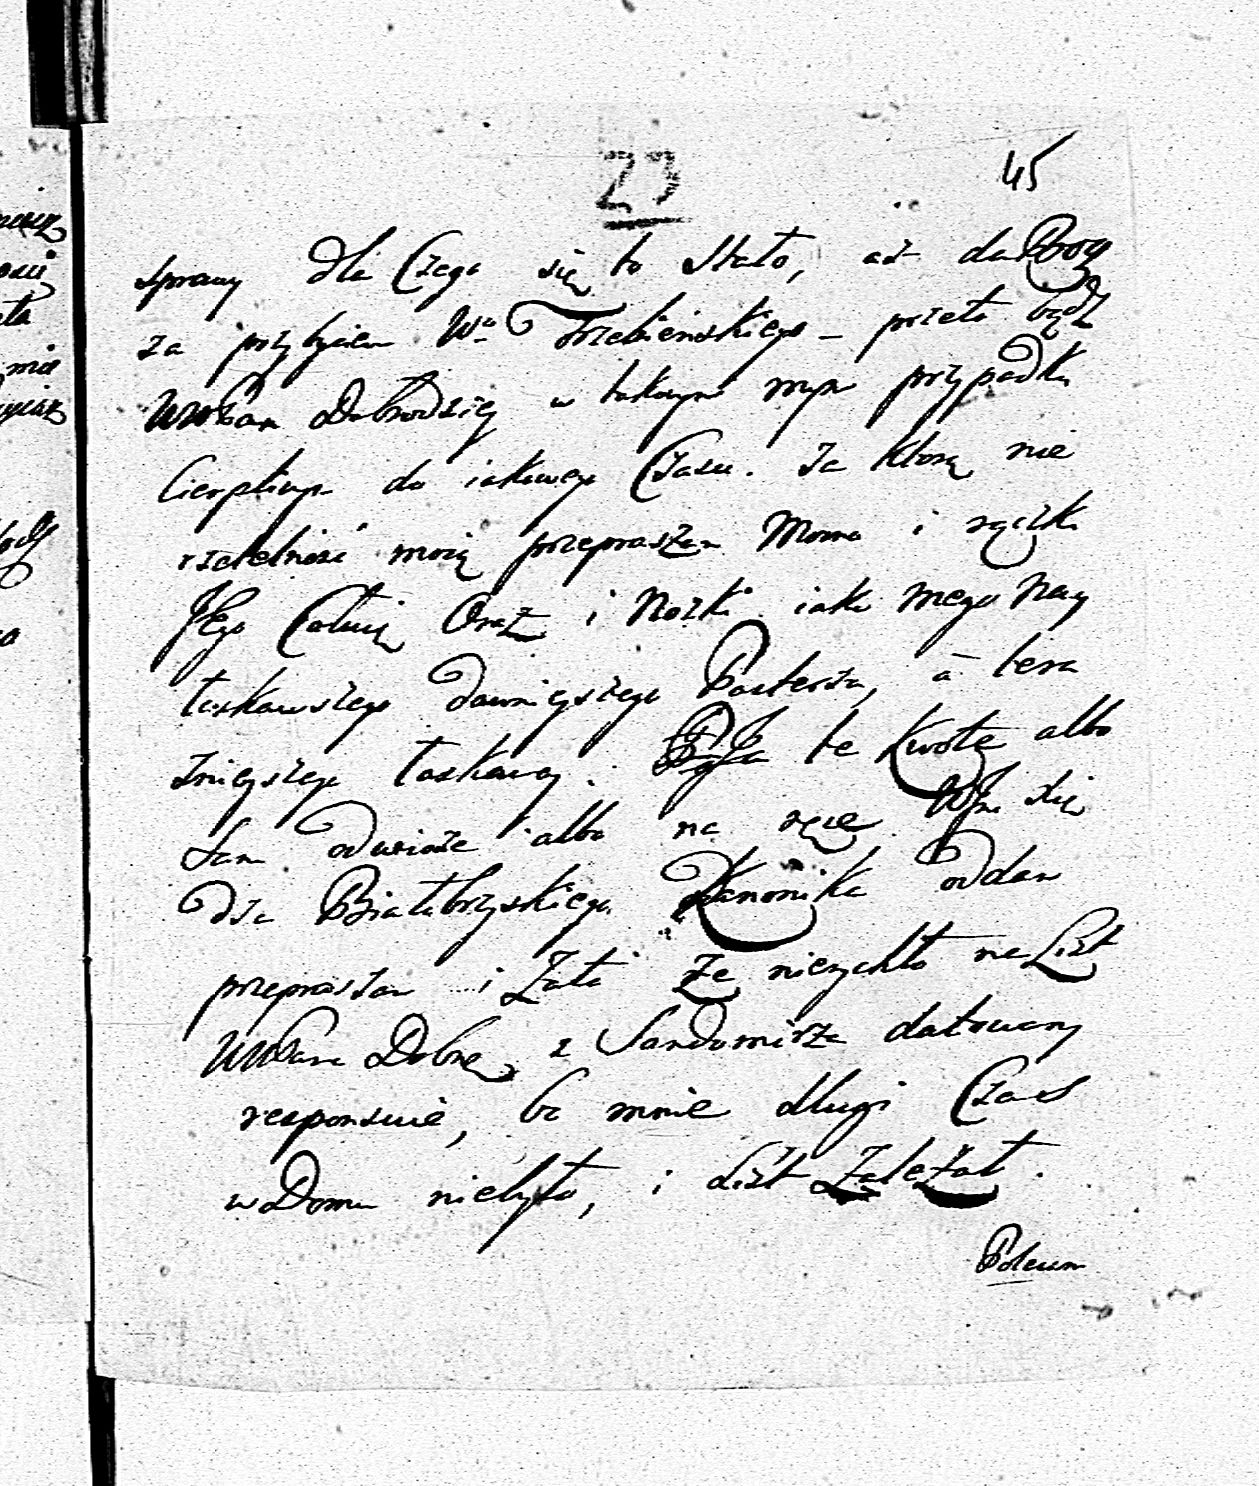 23
45
sprawy dla Czego się to Stało, aż da Boog
za przybyciem Wo Trzebieńskiego – przeto bądź
WWPan Dobrodziey w takowym mym przypadku
Cierpliwym do iakowego Czasu. Za Którą nie
rzetelność moią przepraszam Mowa i rączki
JEgo Całuię Oraz i Nozki iako mego Nay
łaskawszego dawnieyszego Pasterza, à tera
znieyszego łaskawcy. Ja te Kwotę albo
Sam odwioze albo na ręce WJm Xię
dza Białobrzyskiego Kanonika oddam
przepraszam i Zato Ze nierychło na List
WWPana Dobre z Sandomirza datowany
responsuie, bo mnie długi Czas
w Domu niebyło, i List Zależał.
Polecam